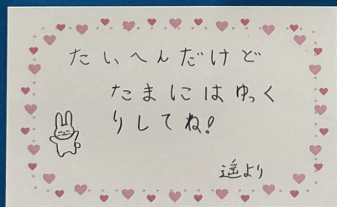 たいへんだけど
たまにはゆっく
りしてね!
遥より